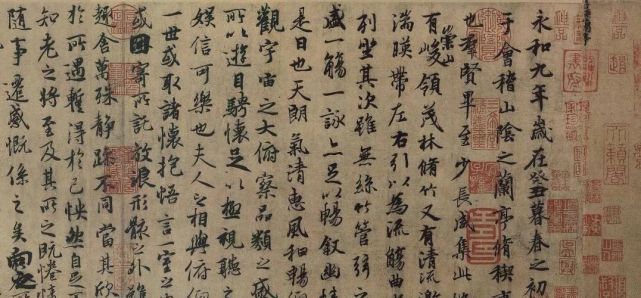 永和九年歲在癸丑暮春之初
于會稽山陰之蘭亭脩稧
也羣賢畢至少長咸集此
有崇山峻領茂林脩竹又有清流激
湍暎帶左右引以為流觴曲
列坐其次雖無絲竹管弦之
盛一觴一詠亦足以暢叙幽情
是日也天朗氣清惠風和暢仰
觀宇宙之大俯察品類之盛
所以遊目騁懷足以極視聽之
娛信可樂也夫人之相與俯仰
一世或取諸懷抱悟言一室之
或因寄所託放浪形骸之外雖
趣舍萬殊静躁不同當其欣
於所遇蹔得於己怏然自足
知老之將至及其所之既惓情
隨事遷感慨係之矣向之